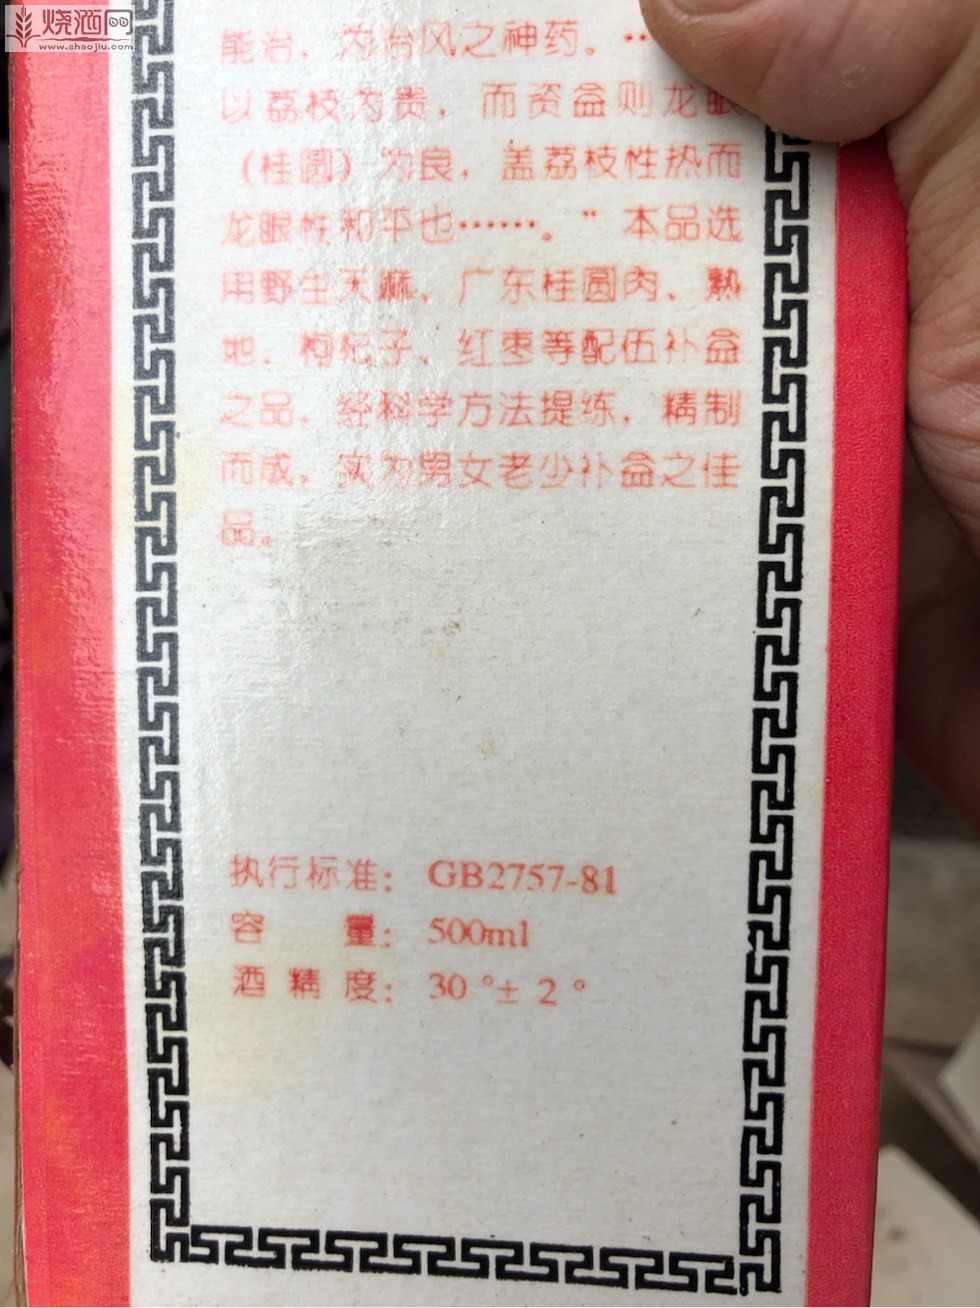 烧酒网
www.shaojiu.com
能治，为治风之神药。……
以荔枝为贵，而资益则龙眼
（桂圆）为良，盖荔枝性热而
龙眼性和平也……。” 本品选
用野生天麻、广东桂圆肉、熟
地、枸杞子、红枣等配伍补益
之品，经科学方法提练，精制
而成，实为男女老少补益之佳
品。
执行标准：GB2757-81
容量：500ml
酒精度：30°±2°